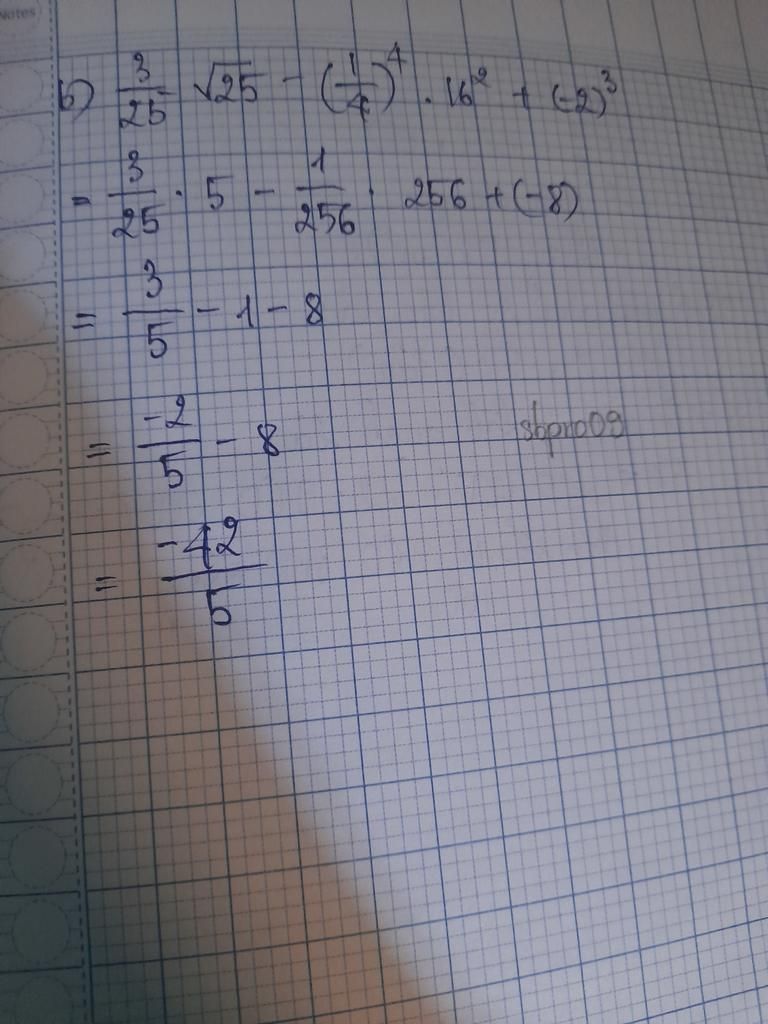 Notes
b) 3/25 √25 - (1/4)^4 . 16^2 + (-2)^3
= 3/25 . 5 - 1/256 . 256 + (-8)
= 3/5 - 1 - 8
= -2/5 - 8
sbpro09
= -42/5